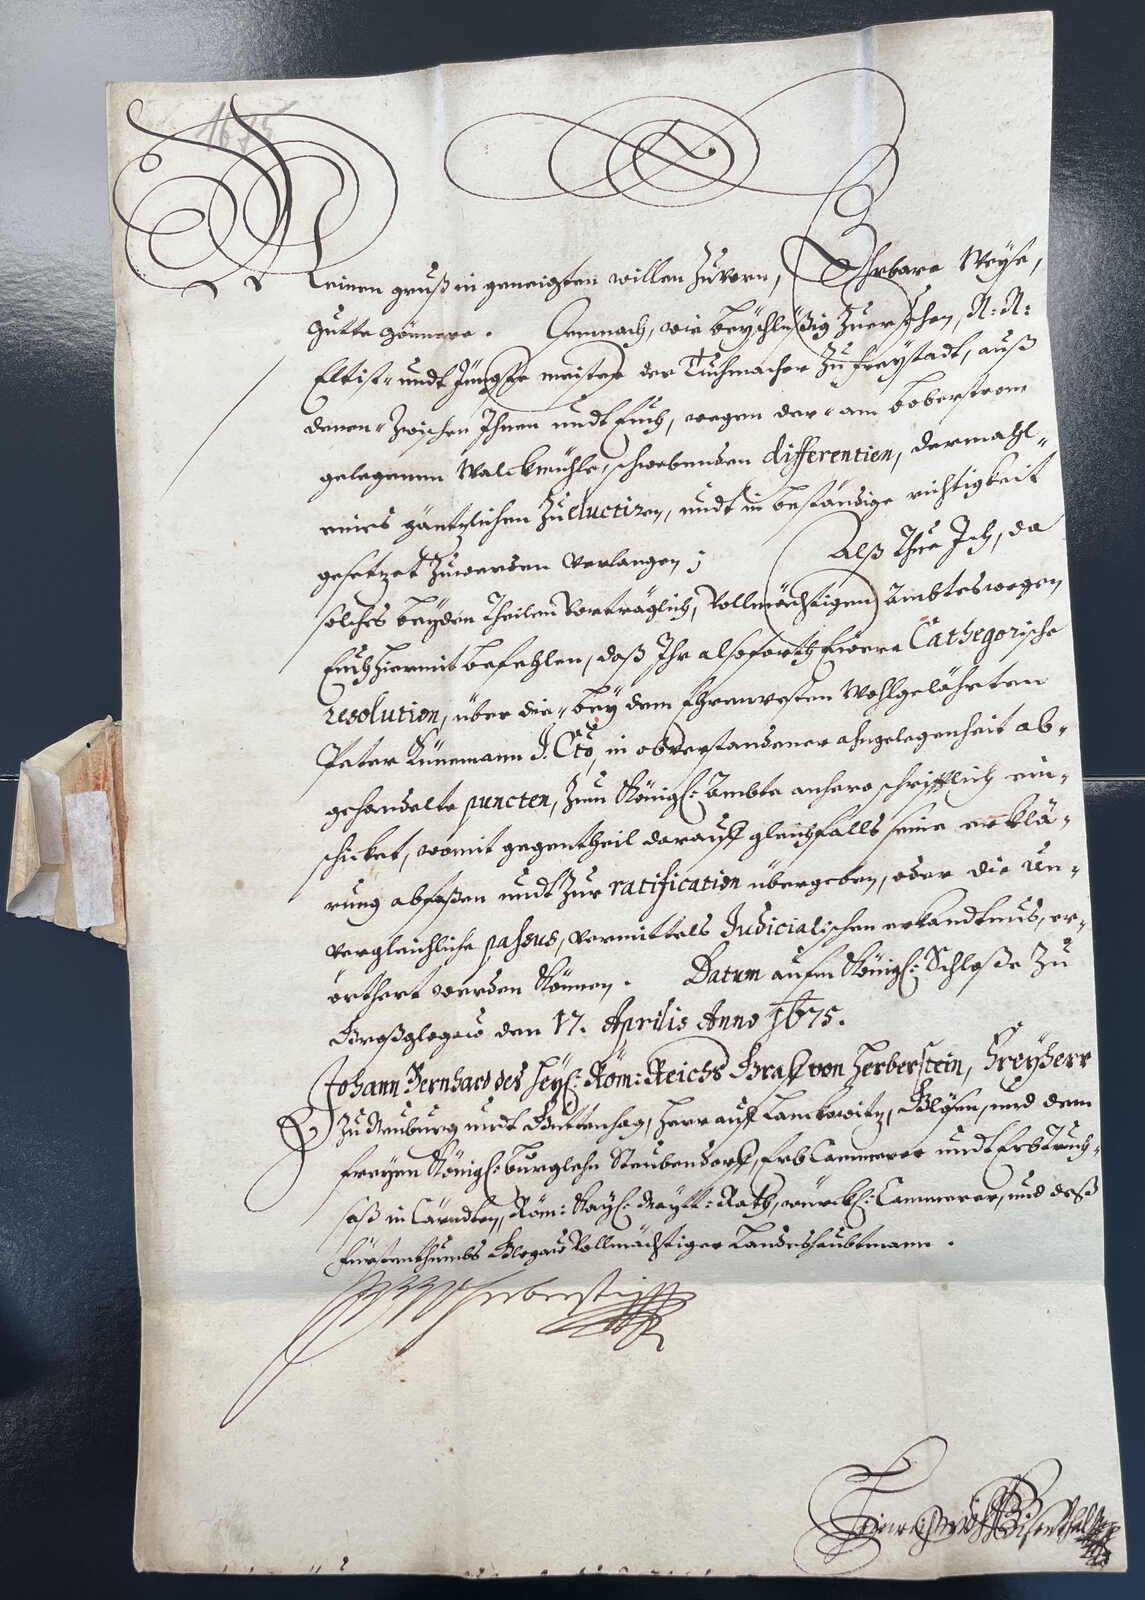 1675
Meinen gruß in geneigten willen Zuvorn, Ehrbare Weyse,
Gutte gönnere. Demnach, wie beyschlüßig Zuersehen, N: N:
Eltist- undt Jüngste meister der Tuchmacher Zu Freystadt, auß
denen- Zwischen Ihnen undt Euch, wegen der- am boberstrom
gelegenen Walckmühle, schwebenden differentien, dermahl-
eines gäntzlichen Zu eluctiren, undt in beständige richtigkeit
gesetzet Zuwerden verlangen;
Alß Thue Ich, da
solches beyden Theilen vorträglich, Vollmächtigen Ambtswegen,
Euch hiermit befehlen, daß Ihr alsoforth Ewere Cathegorische
resolution, über die- bey dem Ehrenvesten Wohlgelährten
Peter Künemann J. Cto, in obverstandener angelegenheit ab-
gehandelte puncten, Zum Königl: Ambte anhero schrifftlich ein-
schicket, womit gegentheil darauff gleichfalls seine erklä-
rung abfaßen undt Zur ratification übergeben, oder die un-
vergleichliche passus, vermittels Judicialischen erkandtnus, er-
örthert werden Können. Datum aufm Königl: Schloße Zu
Großglogaw den 17. Aprilis Anno 1675.
Johann Bernhard des Heyl: Röm: Reichs Graff von Herberstein, Freyherr
Zu Neuburg undt Guttenhag, Herr auff Lanckowitz, und dem
freyen Königl: burglehn Steubendorff, Erb Cammerer undt Erb Truch-
säß in Cärndten, Röm: Kayl: Maytt: Rath, würckl: Cammerer, und deß
Fürstenthumbs Glogaw Vollmächtiger Landeshaubtmann.
Herberstein